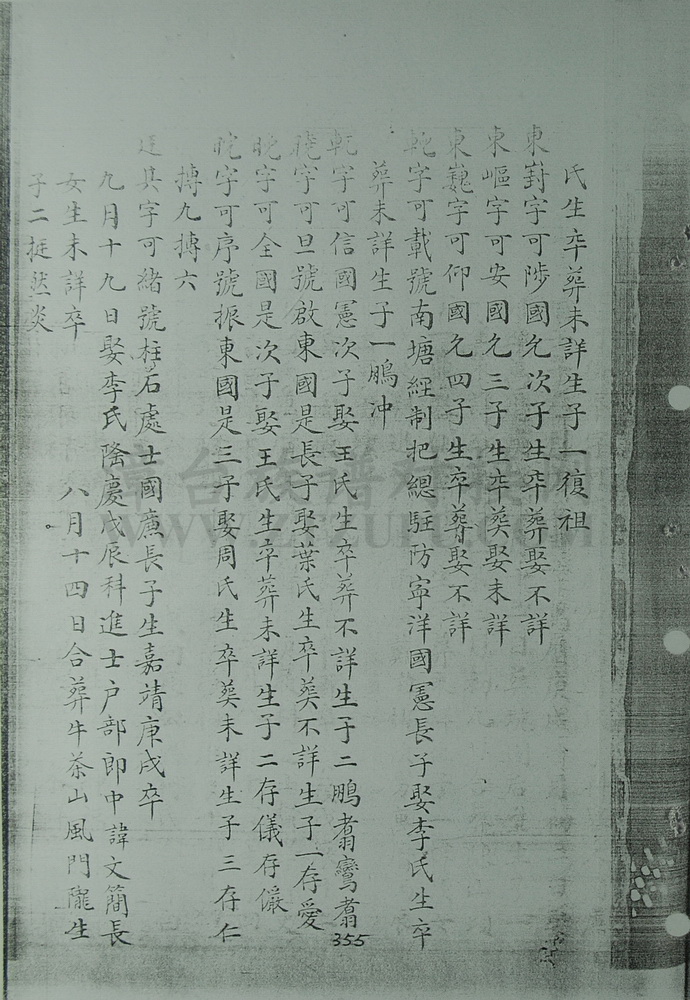 氏生卒葬未詳生子一復祖
東崶字可陟國允次子生卒葬娶不詳
東嶇字可安國允三子生卒葬娶未詳
東巍字可仰國允四子生卒葬娶不詳
軏字可載號南塘經制把總駐防寧洋國憲長子娶李氏生卒
葬未詳生子一鵬冲
軏字可信國憲次子娶王氏生卒葬不詳生子二鵬翥鸞翥
字可旦號啟東國是長子娶葉氏生卒葬不詳生子一存愛
字可全國是次子娶王氏生卒葬未詳生子二存儀存儼
字可序號振東國是三子娶周氏生卒葬未詳生子三存仁
搏九搏六
廷其字可緒號柱石處士國廉長子生嘉靖庚戌卒
九月十九日娶李氏隆慶戊辰科進士户部郎中諱文簡長
女生未詳卒 八月十四日合葬牛茶山風門隴生
子二挺然炎
355
章台族譜
www.ztzupu.com